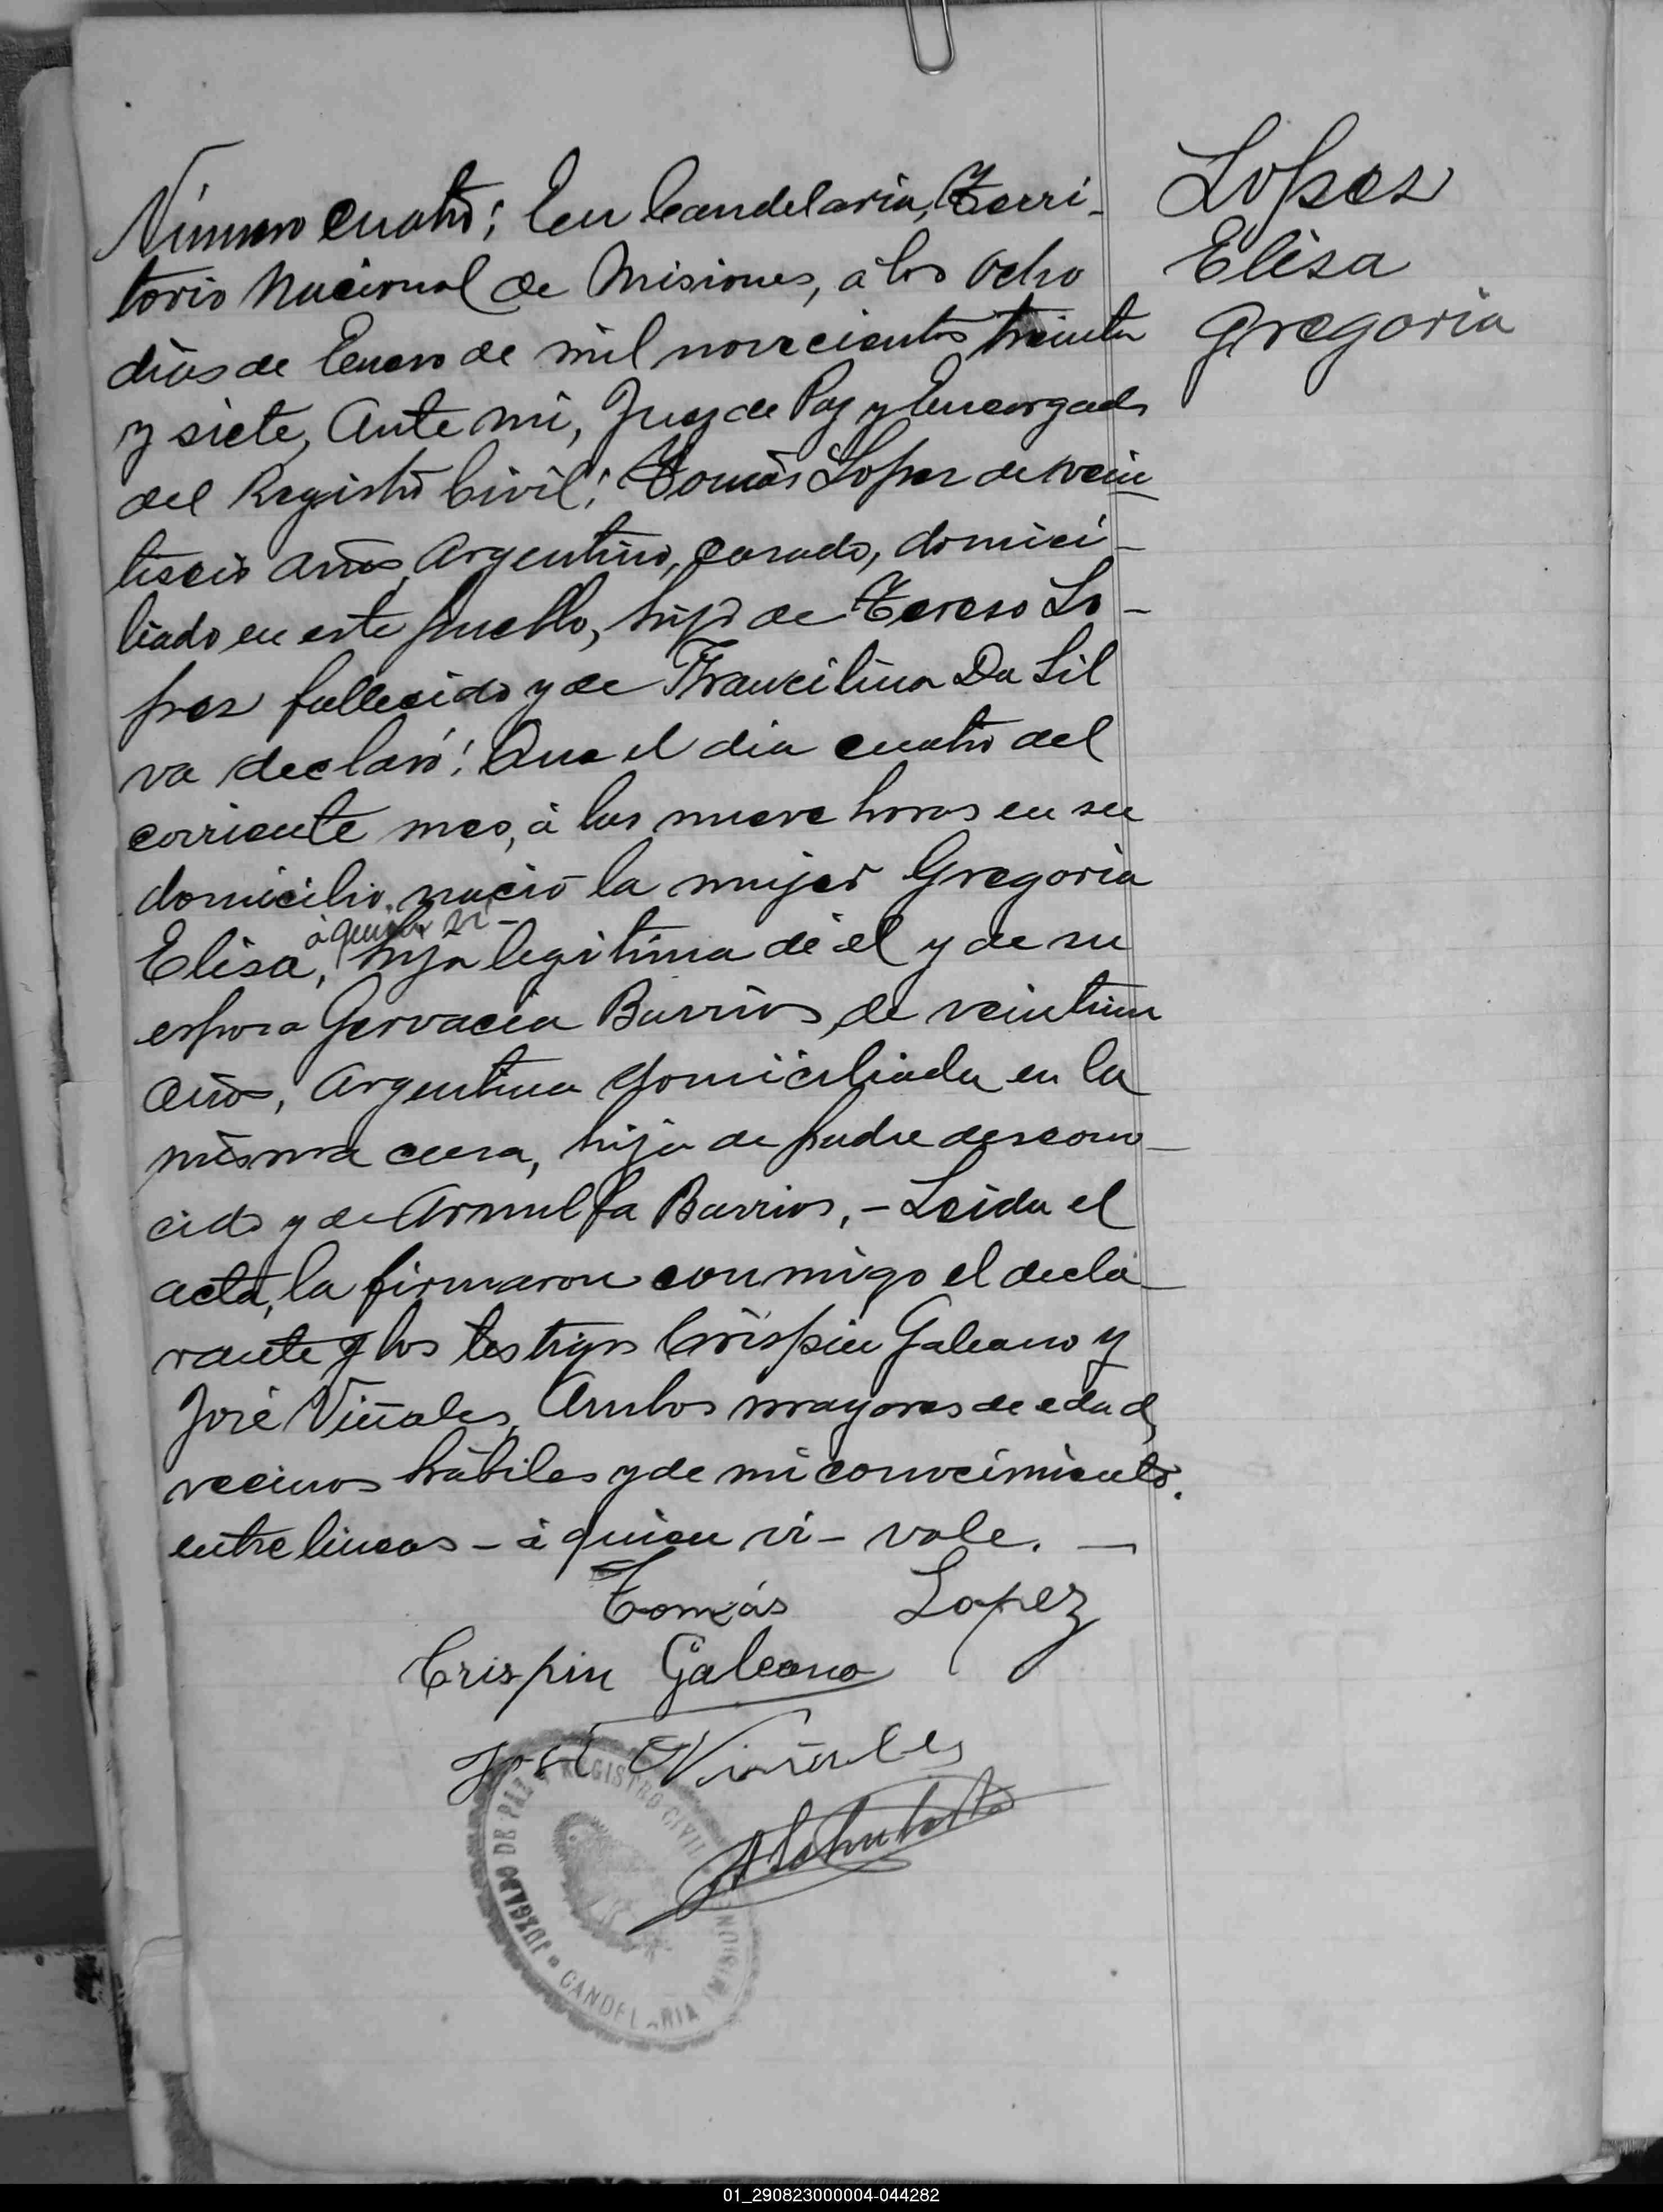 Número cuatro: En Candelaria, Terri-
torio Nacional de Misiones, á los ocho
dias de Enero de mil novecientos treinta
y siete, Ante mi, Juez de Paz y Encargado
del Registro Civil: Tomás Lopez de vein
tiseis años, Argentino, casado, domici-
liado en este pueblo, hijo de Tereso Lo-
pez fallecido y de Francilina Da Sil
va declaró: Que el dia cuatro del
corriente mes, á las nueve horas en su
domicilio, nació la mujer Gregoria
á quien vi -
Elisa, hija legitima de él y de su
esposa Gervacia Barrios, de veintiun
años, Argentina domiciliada en la
misma casa, hija de padre descono-
cido y de Arnulfa Barrios, - Leida el
acta, la firmaron conmigo el decla-
rante y los testigos Crispin Galeano y
José Viñales, Ambos mayores de edad,
vecinos hábiles y de mi conocimiento.
entre lineas - á quien vi - vale. -
Tomás Lopez
Crispin Galeano
José Viñales
JUZGADO DE PAZ Y REGISTRO CIVIL
CANDELARIA (MISIONES)
Lopez
Elisa
Gregoria
01_290823000004-044282